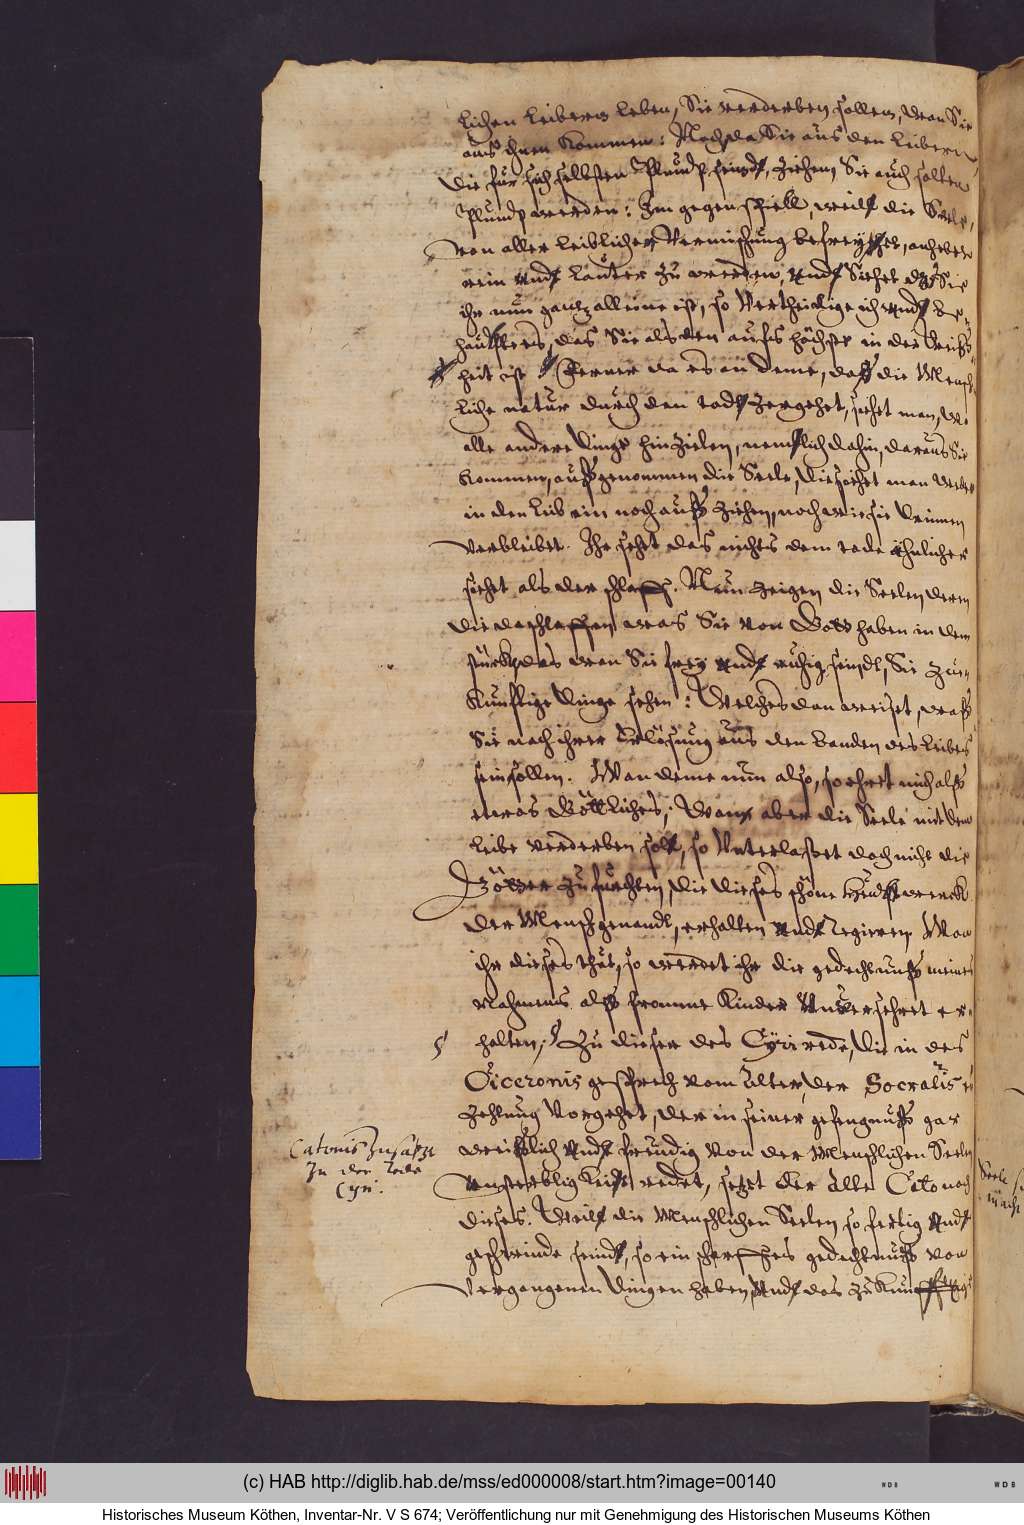 lichen leibern leben, Sie verderben sollen, wan Sie
aus ihnen kommen: Noch da Sie aus den leibern
die für sich selbsten Plump seindt, ziehen, Sie auch solten
Plump werden: Im gegenspiell, weill die Seele,
von aller leiblicher Vermischung befreyhet, anheben
rein undt lauter zu werden, undt Siehet das Sie
ihr nun gantz alleine ist, so Vertheidige ich undt be-
haubte, das Sie als den aufs höchste in der Weis-
heit ist § Ferner da es an deme, daß die Mensch-
liche natur durch den todt zergehet, siehet man, wo
alle andere dinge hinzielen, nemblich dahin, daraus Sie
kommen, außgenommen die Seele, die siehet man weder
in den leib ein noch auß ziehen, noch wie sie drinnen
verbleibet. Ihr sehet das nichts dem tode ähnlicher
siehet als der schlaff. Nun zeigen die Seelen deren
die da schlaffen, was Sie von Gott haben, in dem
stück, das wan Sie frey undt ruhig seindt, Sie zu-
künfftige dinge sehen: Welches dan weiset, waß
Sie nach ihrer Erlösung aus den banden des leibes
sein sollen. Wan deme nun also, so ehret mich alß
etwas Göttliches; Wan aber die Seele mit dem
leibe verderben solt, so Unterlaßet doch nicht die
Götter zu furchten, die dieses schöne werck
der Mensch genandt, erhalten undt regieren. Wan
ihr dieses thut, so werdet ihr die gedechtnuß meines
Nahmens alß fromme Kinder Unversehret er-
§ halten; § Zu dieser des Cyri rede, die in des
Ciceronis gesprech vom alter, der Socratis er-
zehlung Vorgehet, der in seiner gefengnuß gar
weißlich undt freudig von der Menschlichen Seelen
Unsterbligkeit redet, setzt der alte Cato noch
dieses. Weill die Menschlichen Seelen so fertig undt
geschwinde seindt, so ein scharffes gedechtnuß von
Vergangenen dingen haben, undt das zukünfftige
Catonis Zusatz
zu der Rede
Cyri.
Seele
(c) HAB http://diglib.hab.de/mss/ed000008/start.htm?image=00140
WDB
WDB
Historisches Museum Köthen, Inventar-Nr. V S 674; Veröffentlichung nur mit Genehmigung des Historischen Museums Köthen